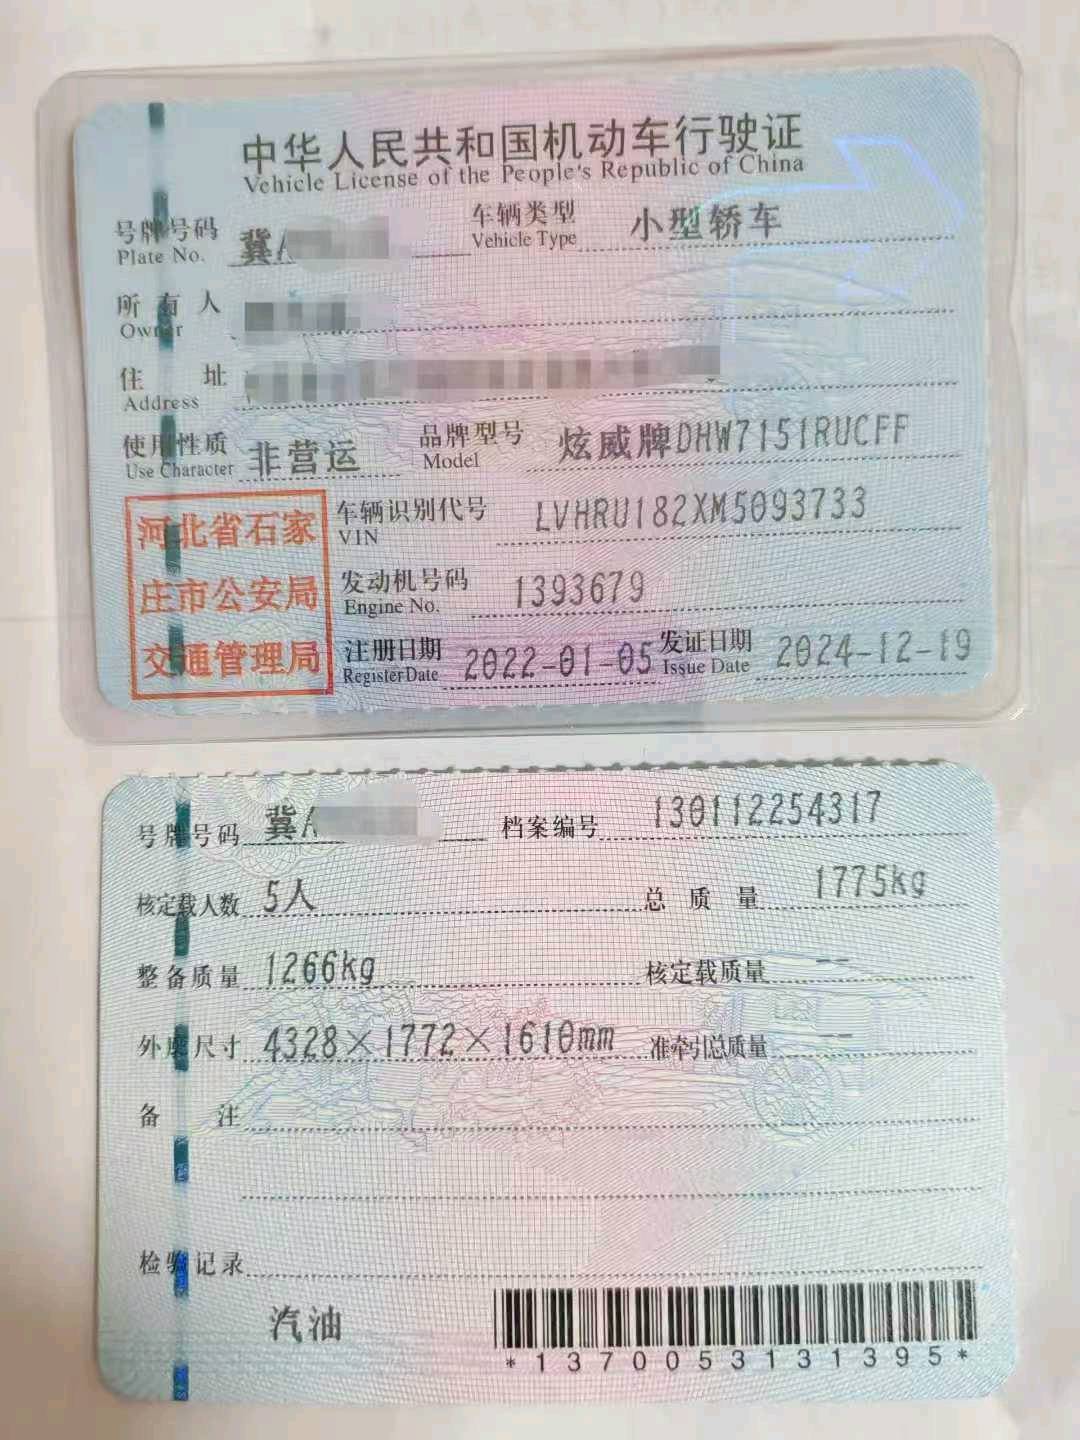 中华人民共和国机动车行驶证
Vehicle License of the People's Republic of China
号牌号码 冀A 车辆类型 小型轿车
Plate No. Vehicle Type
所有人
Owner
住址
Address
使用性质 非营运 品牌型号 炫威牌DHW7151RUCFF
Use Character Model
河北省石家
庄市公安局
交通管理局
车辆识别代号 LVHRU182XM5093733
VIN
发动机号码 1393679
Engine No.
注册日期 2022-01-05 发证日期 2024-12-19
Register Date Issue Date
号牌号码 冀A 档案编号 130112254317
核定载人数 5人 总质量 1775kg
整备质量 1266kg 核定载质量 --
外廓尺寸 4328×1772×1610mm 准牵引总质量 --
备注
检验记录
汽油
*1370053131395*